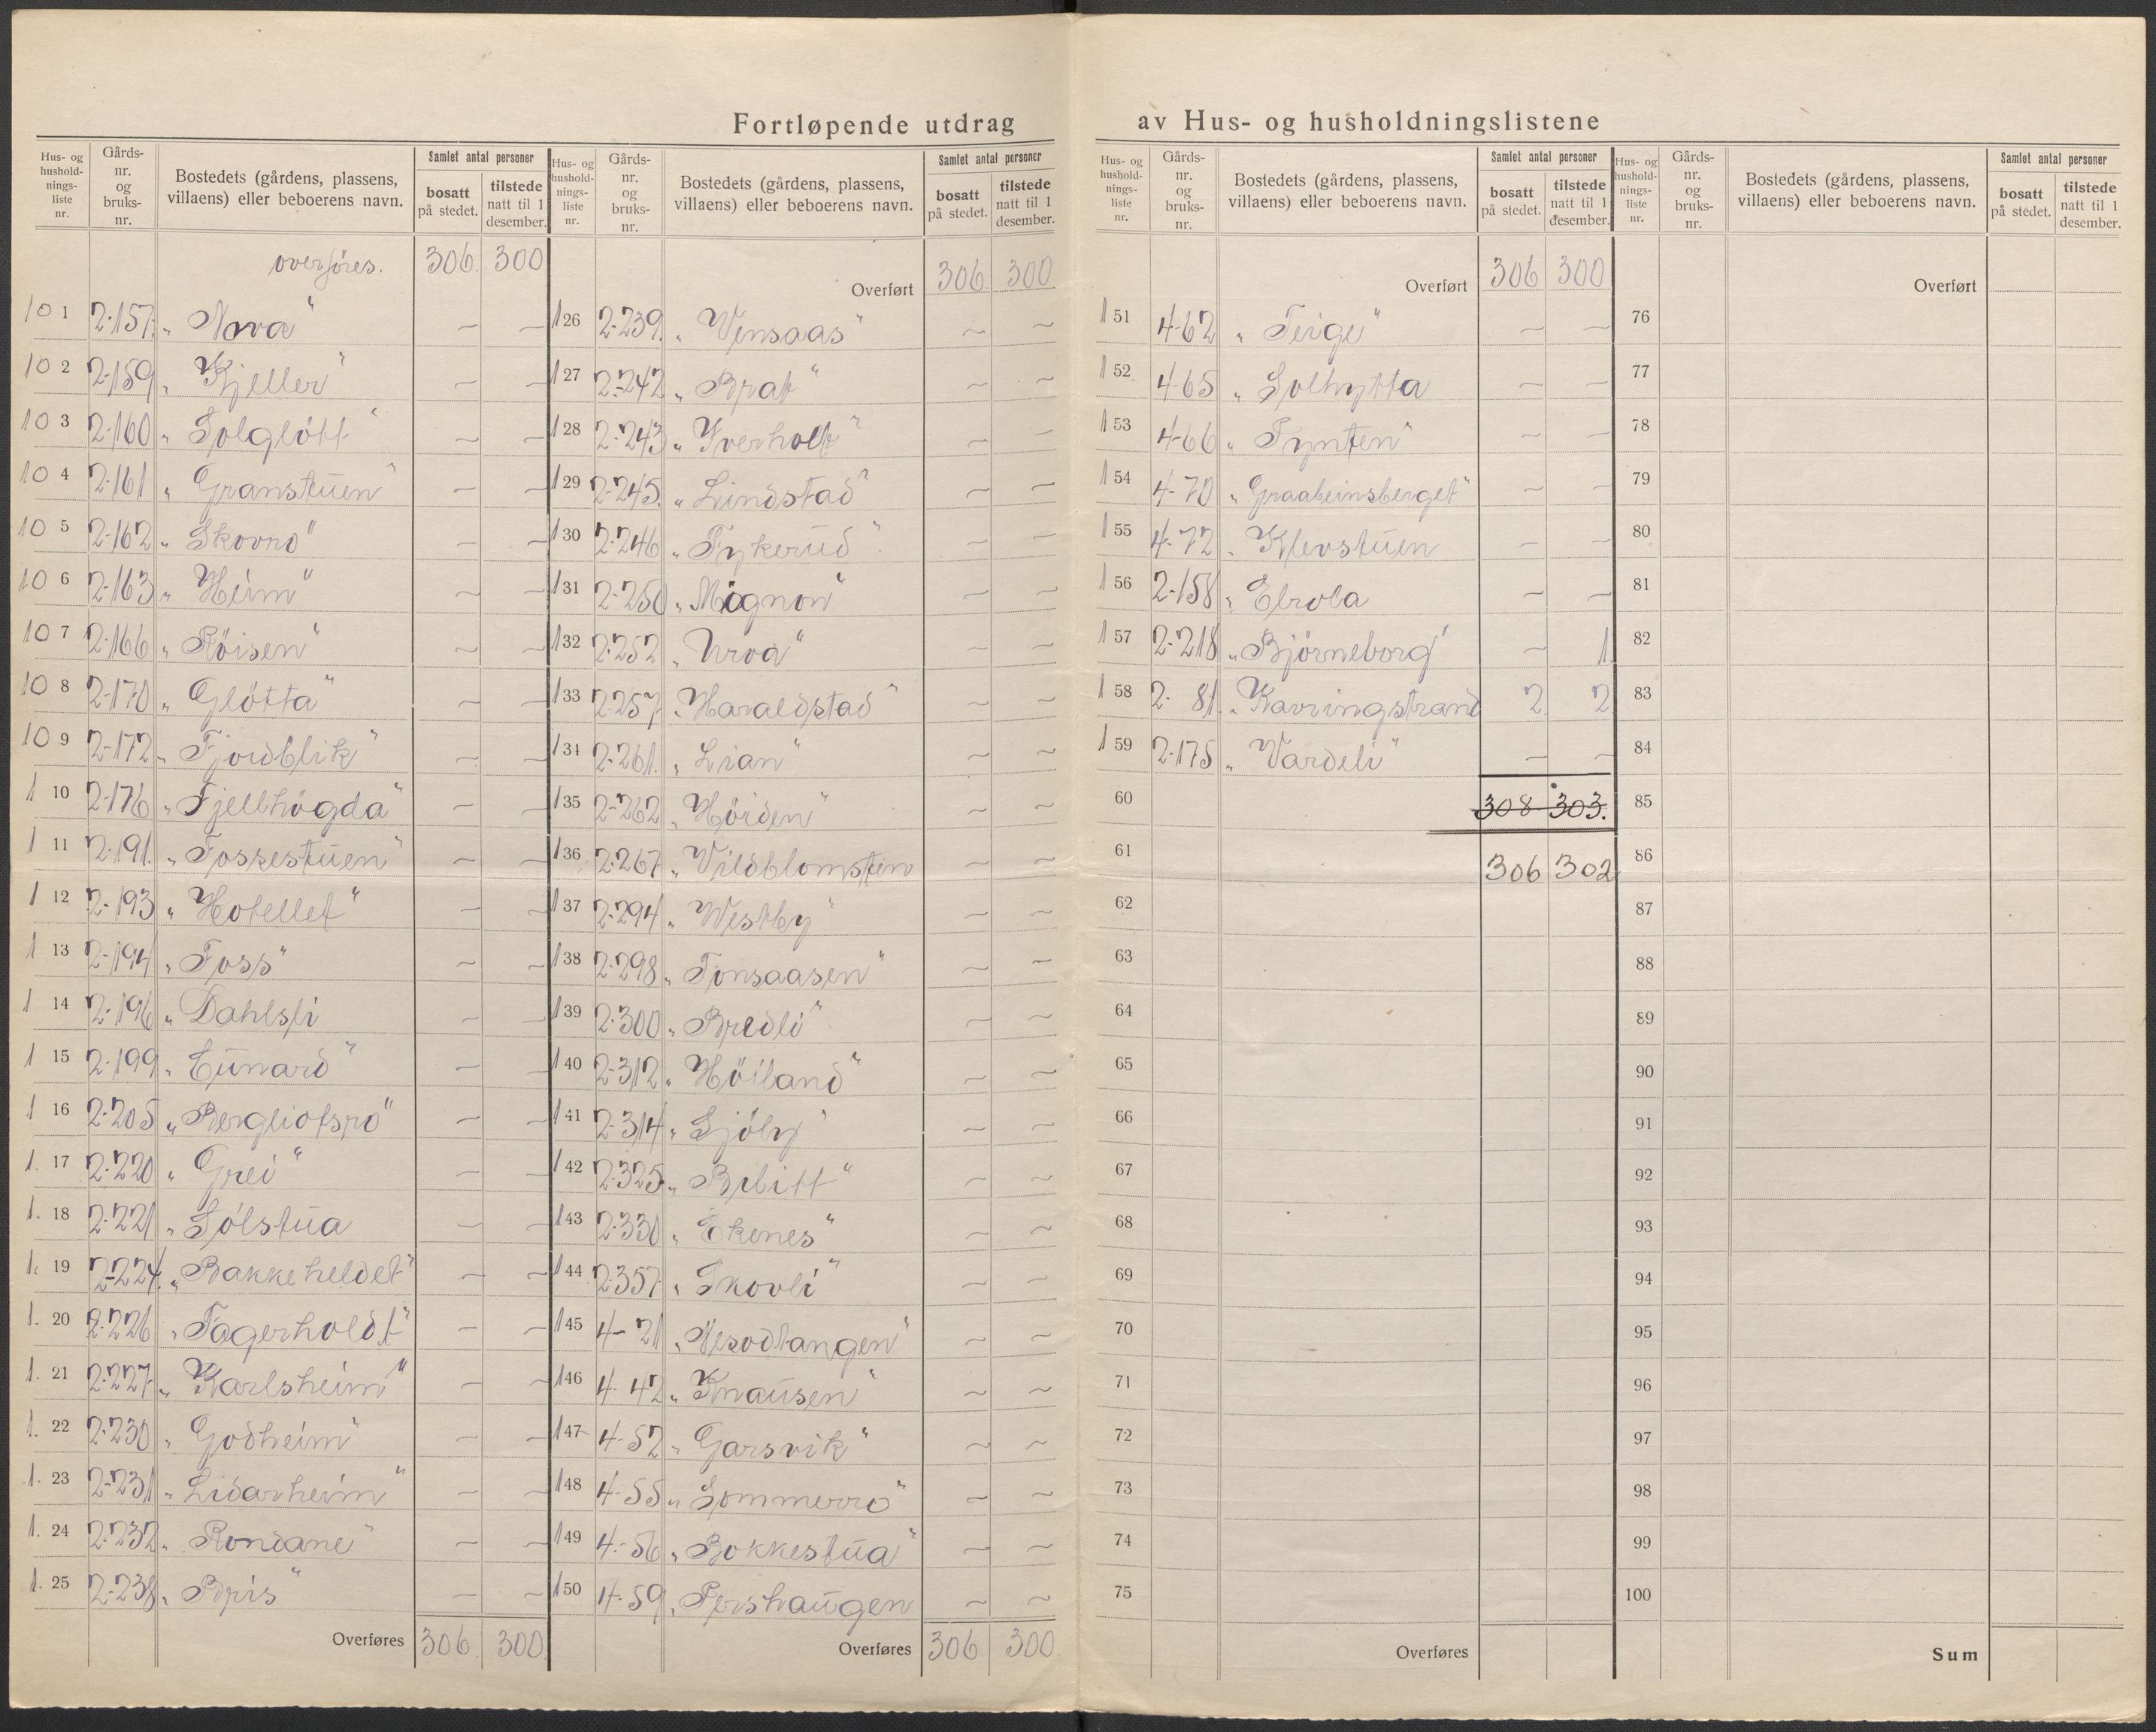 Fortløpende utdrag av Hus- og husholdningslistene
Hus- og husholdnings- liste nr. | Gårds- nr. og bruks- nr. | Bostedets (gårdens, plassens, villaens) eller beboerens navn. | Samlet antal personer bosatt på stedet. | tilstede natt til 1 desember.
overføres. 306. 300
101 2-157. „ Nova"
102 2-159 „ Kjeller" — —
103 2-160 „ Solgløtt" — —
104 2-161 „ Granstuen" — —
105 2-162 „ Skovro" — —
106 2-163 „ Heim" — —
107 2-166 „ Røisen" — —
108 2-170 „ Gløtta" — —
109 2-172 „ Fjordblik" — —
110 2-176 „ Fjellhøgda" — —
111 2-191. „ Fossestuen" — —
112 2-193 „ Hotellet" — —
113 2-194 „ Foss" — —
114 2-196 „ Dahlsli — —
115 2-199 „ Cunard" — —
116 2-205 „ Bergliotsro" — —
1. 17 2-220 „ Grei" — —
1. 18 2-221 „ Solstua — —
1. 19 2-224. „ Bakkeheldet" — —
1. 20 2-226 „ Fagerholdt" — —
1. 21 2-227 „ Karlsheim" — —
1. 22 2-230 „ Godheim" — —
1. 23 2-231 „ Lidarheim" — —
1. 24 2-232 „ Rondane" — —
1. 25 2-238 „ Bris" — —
Overføres 306 300
Hus- og husholdnings- liste nr. | Gårds- nr. og bruks- nr. | Bostedets (gårdens, plassens, villaens) eller beboerens navn. | Samlet antal personer bosatt på stedet. | tilstede natt til 1 desember.
Overført 306 300
126 2-239. „ Vensaas" — —
127 2-242 „ Brat" — —
128 2-243 „ Iverholt" — —
129 2-245. „ Lindstad" — —
130 2-246 „ Fykerud" — —
131 2-250 „ Mignon" — —
132 2-252 „ Urva" — —
133 2-257 „ Haraldstad" — —
134 2-261. „ Lian" — —
135 2-262 „ Høiden" — —
136 2-267 „ Vildblomsten — —
137 2-294 „ Westby" — —
138 2-298 „ Tonsaasen" — —
139 2-300 „ Bredli" — —
140 2-312 „ Høiland" — —
141 2-314 „ Sjøly" — —
142 2-325 „ Bilitt" — —
143 2-330 „ Ekenes" — —
144 2-357 „ Skovli" — —
145 4-21 „ Nesodtangen" — —
146 4-42 „ Knausen" — —
147 4-52 „ Garsvik" — —
148 4-55 „ Sommerro" — —
149 4-56 „ Bokkestua" — —
150 4-59 „ Pershaugen — —
Overføres 306 300
Hus- og husholdnings- liste nr. | Gårds- nr. og bruks- nr. | Bostedets (gårdens, plassens, villaens) eller beboerens navn. | Samlet antal personer bosatt på stedet. | tilstede natt til 1 desember.
Overført 306 300
151 4-62 „ Teige" — —
152 4-65 „ Solhytta — —
153 4-66 „ Tynten" — —
154 4-70 „ Graabeinsberget" — —
155 4-72 „ Klevstuen — —
156 2-158 „ Elvola — —
157 2-218 „ Bjørneborg" — 1.
158 2-81. „ Kavringstrand 2 2
159 2-175 „ Vardeli" — —
60 308 303.
61 306 302
62
63
64
65
66
67
68
69
70
71
72
73
74
75
Overføres
Hus- og husholdnings- liste nr. | Gårds- nr. og bruks- nr. | Bostedets (gårdens, plassens, villaens) eller beboerens navn. | Samlet antal personer bosatt på stedet. | tilstede natt til 1 desember.
Overført
76
77
78
79
80
81
82
83
84
85
86
87
88
89
90
91
92
93
94
95
96
97
98
99
100
Sum